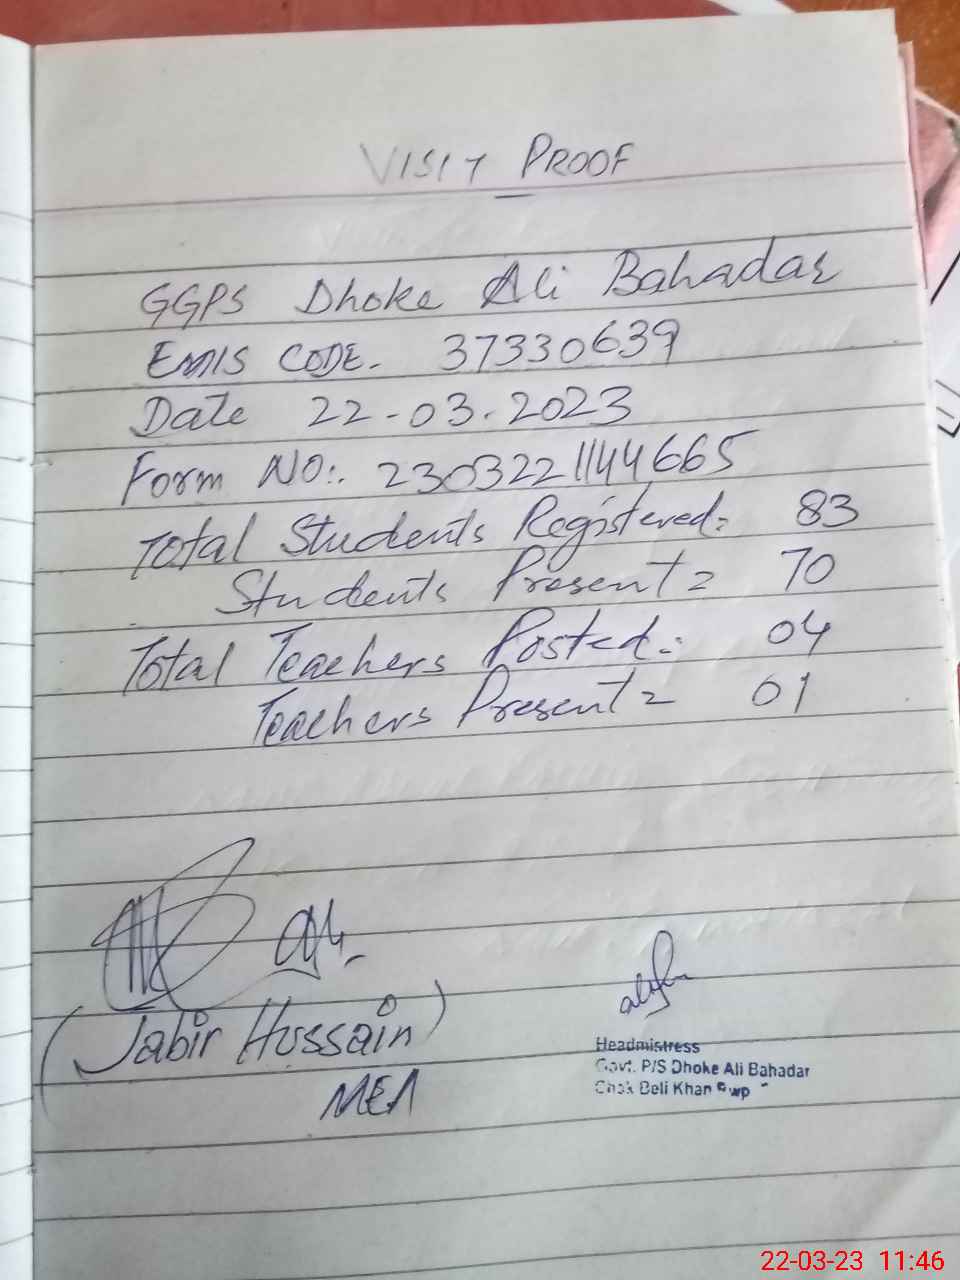 VISIT PROOF
GGPS Dhoke Ali Bahadar
EMIS CODE. 37330639
Date 22-03-2023
Form NO:. 2303221144665
Total Students Registered= 83
Students Present = 70
Total Teachers Posted = 04
Teachers Present = 01
(Jabir Hussain)
MEA
Headmistress
Govt. P/S Dhoke Ali Bahadar
Chak Beli Khan Rwp
22-03-23 11:46